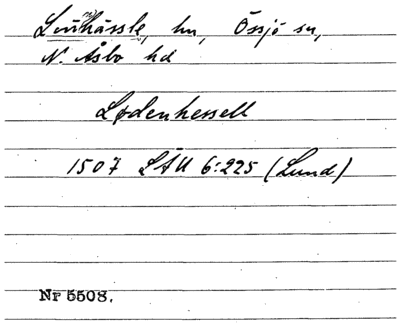 Lönhässle, hn, Össjö sn,
N. Åsbo hd
Lødenhessell
1507 LÄU 6:225 (Lund)
Nr 5508.